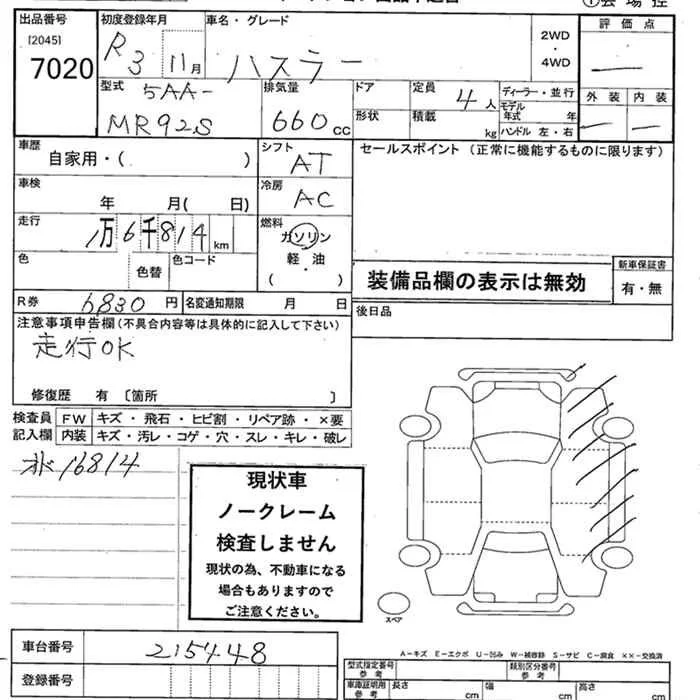 出品番号
[2045]
7020
初度登録年月
R3 11月
車名・グレード
ハスラー
2WD
・
4WD
評価点
外装 内装
型式
5AA-
MR92S
排気量
660cc
ドア
形状
定員
4人
積載
kg
ディーラー・並行
モデル年式 年
ハンドル 左・右
車歴
自家用・( )
シフト
AT
セールスポイント (正常に機能するものに限ります)
車検
年 月( 日)
冷房
AC
走行
1万6千814km
燃料
ガソリン
軽・油
( )
色
色替
色コード
装備品欄の表示は無効
新車保証書
有・無
R券 6830円
名変通知期限 月 日
後日品
注意事項申告欄(不具合内容等は具体的に記入して下さい)
走行OK
修復歴 有 〔箇所 〕
検査員記入欄
FW キズ・飛石・ヒビ割・リペア跡・×要
内装 キズ・汚レ・コゲ・穴・スレ・キレ・破レ
オド16814
現状車
ノークレーム
検査しません
現状の為、不動車になる
場合もありますので
ご注意ください。
スペア
A-キズ E-エクボ U-凹み W-補修跡 S-サビ C-腐食 ××-交換済
車台番号 215448
登録番号
型式指定番号
類別区分番号
車庫証明用参考
長さ cm
幅 cm
高さ cm